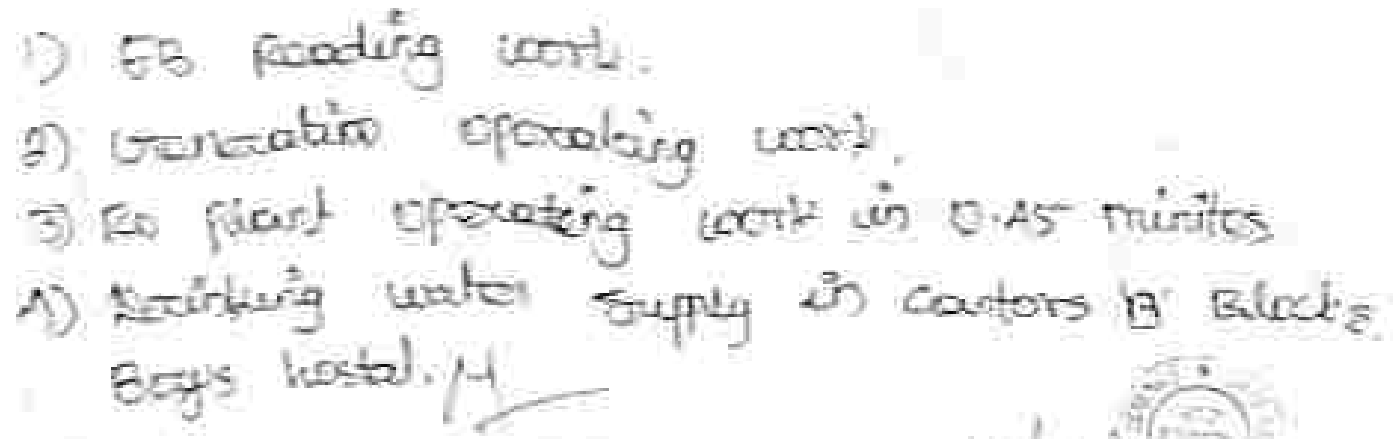 1) EB Reading work.
2) Generator operating work.
3) Ro plant operating work in 0.45 minites
4) Drinking water supply in B Block &
Boys hostel.